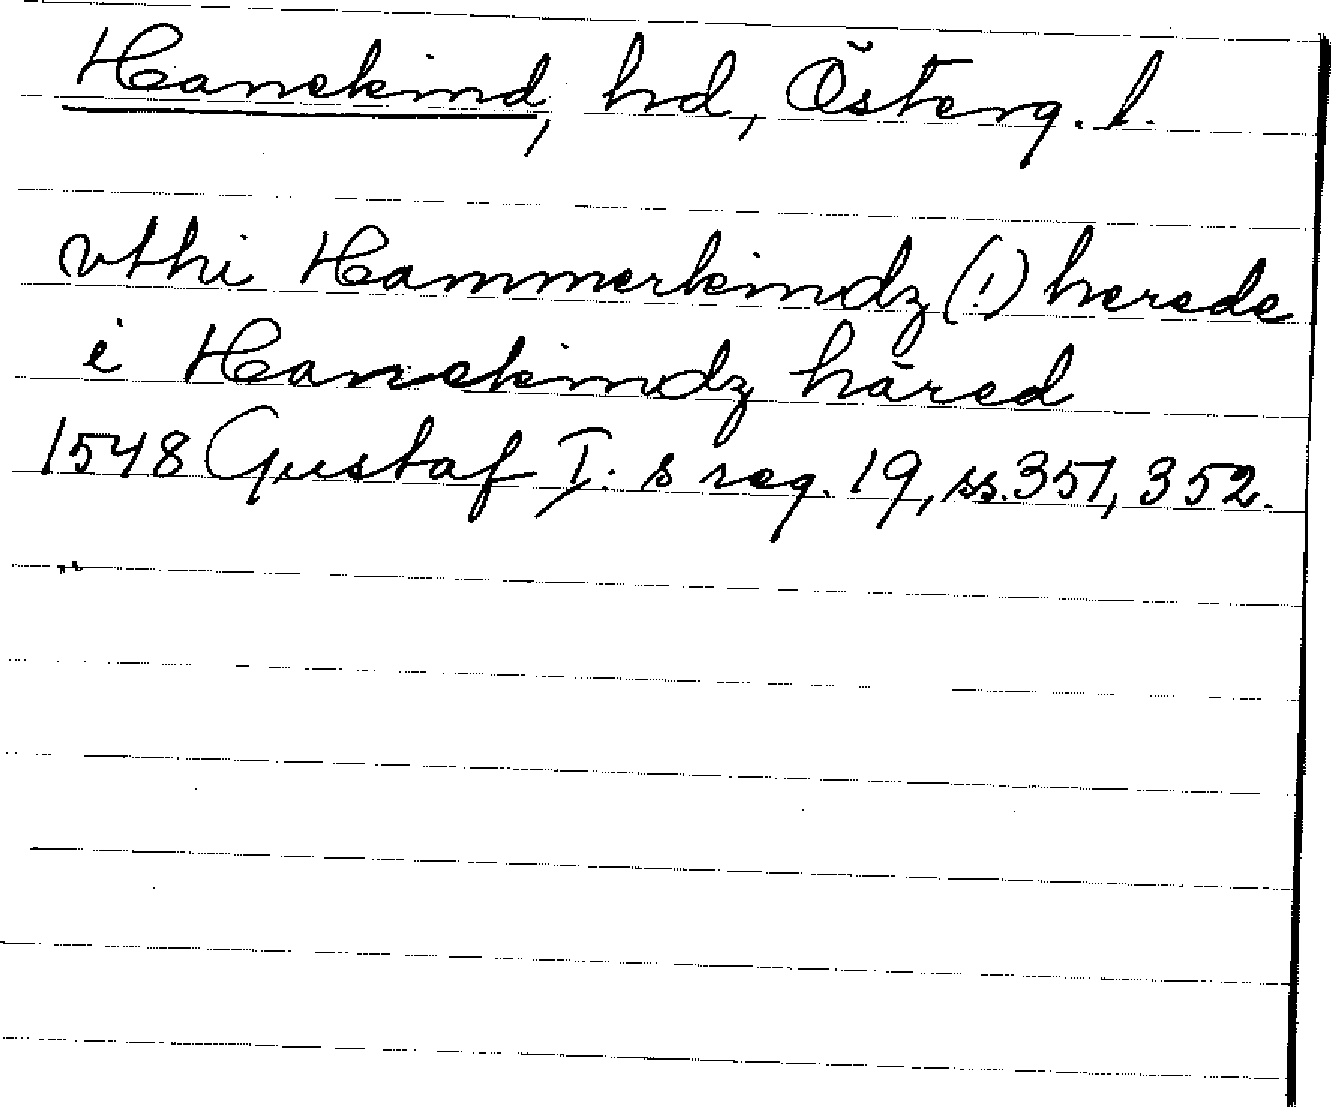 Hanekind, hd, Österg. l.
vthi Hammerkindz (!) herede
i Hanekindz häred
1548 Gustaf I:s reg. 19, ss. 351, 352.